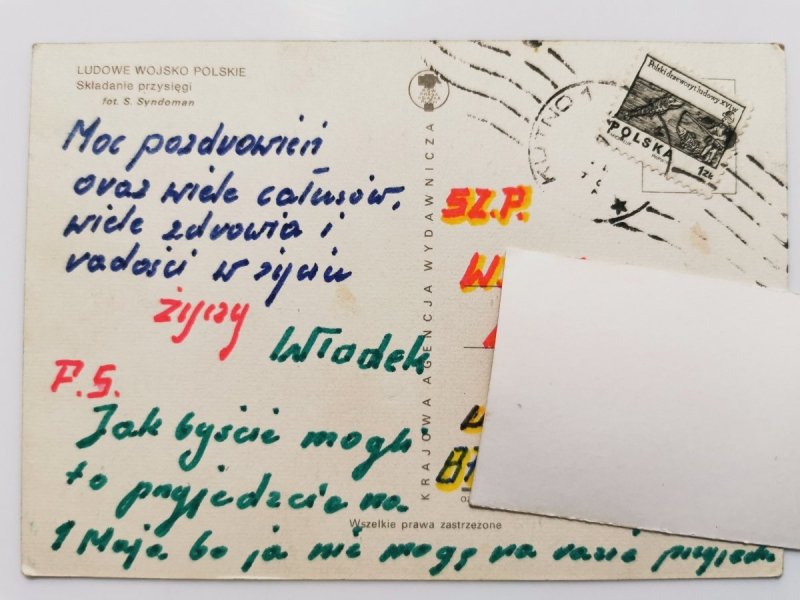 LUDOWE WOJSKO POLSKIE
Składanie przysięgi
fot. S. Syndoman
Moc pozdrowień
oraz wiele całusów,
wiele zdrowia i
radości w życiu
życzy
Włodek
P.S.
Jak byście mogli
to przyjedzcie na
1 Maja. bo ja nie mogę na razie przyjech
KRAJOWA AGENCJA WYDAWNICZA
Wszelkie prawa zastrzeżone
KUTNO 1
Polski drzeworyt ludowy XVI w.
POLSKA
1 ZŁ
SZ.P.
W.